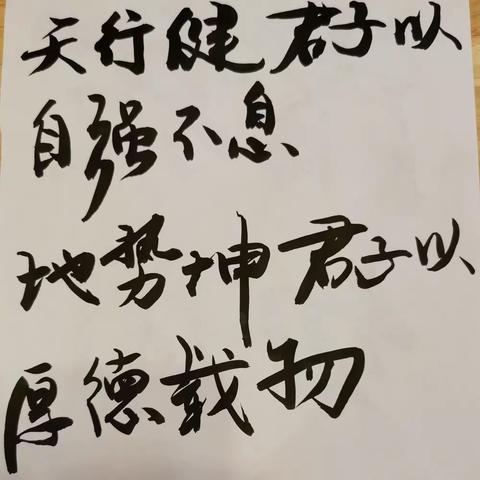 天行健君子以
自强不息
地势坤君子以
厚德载物